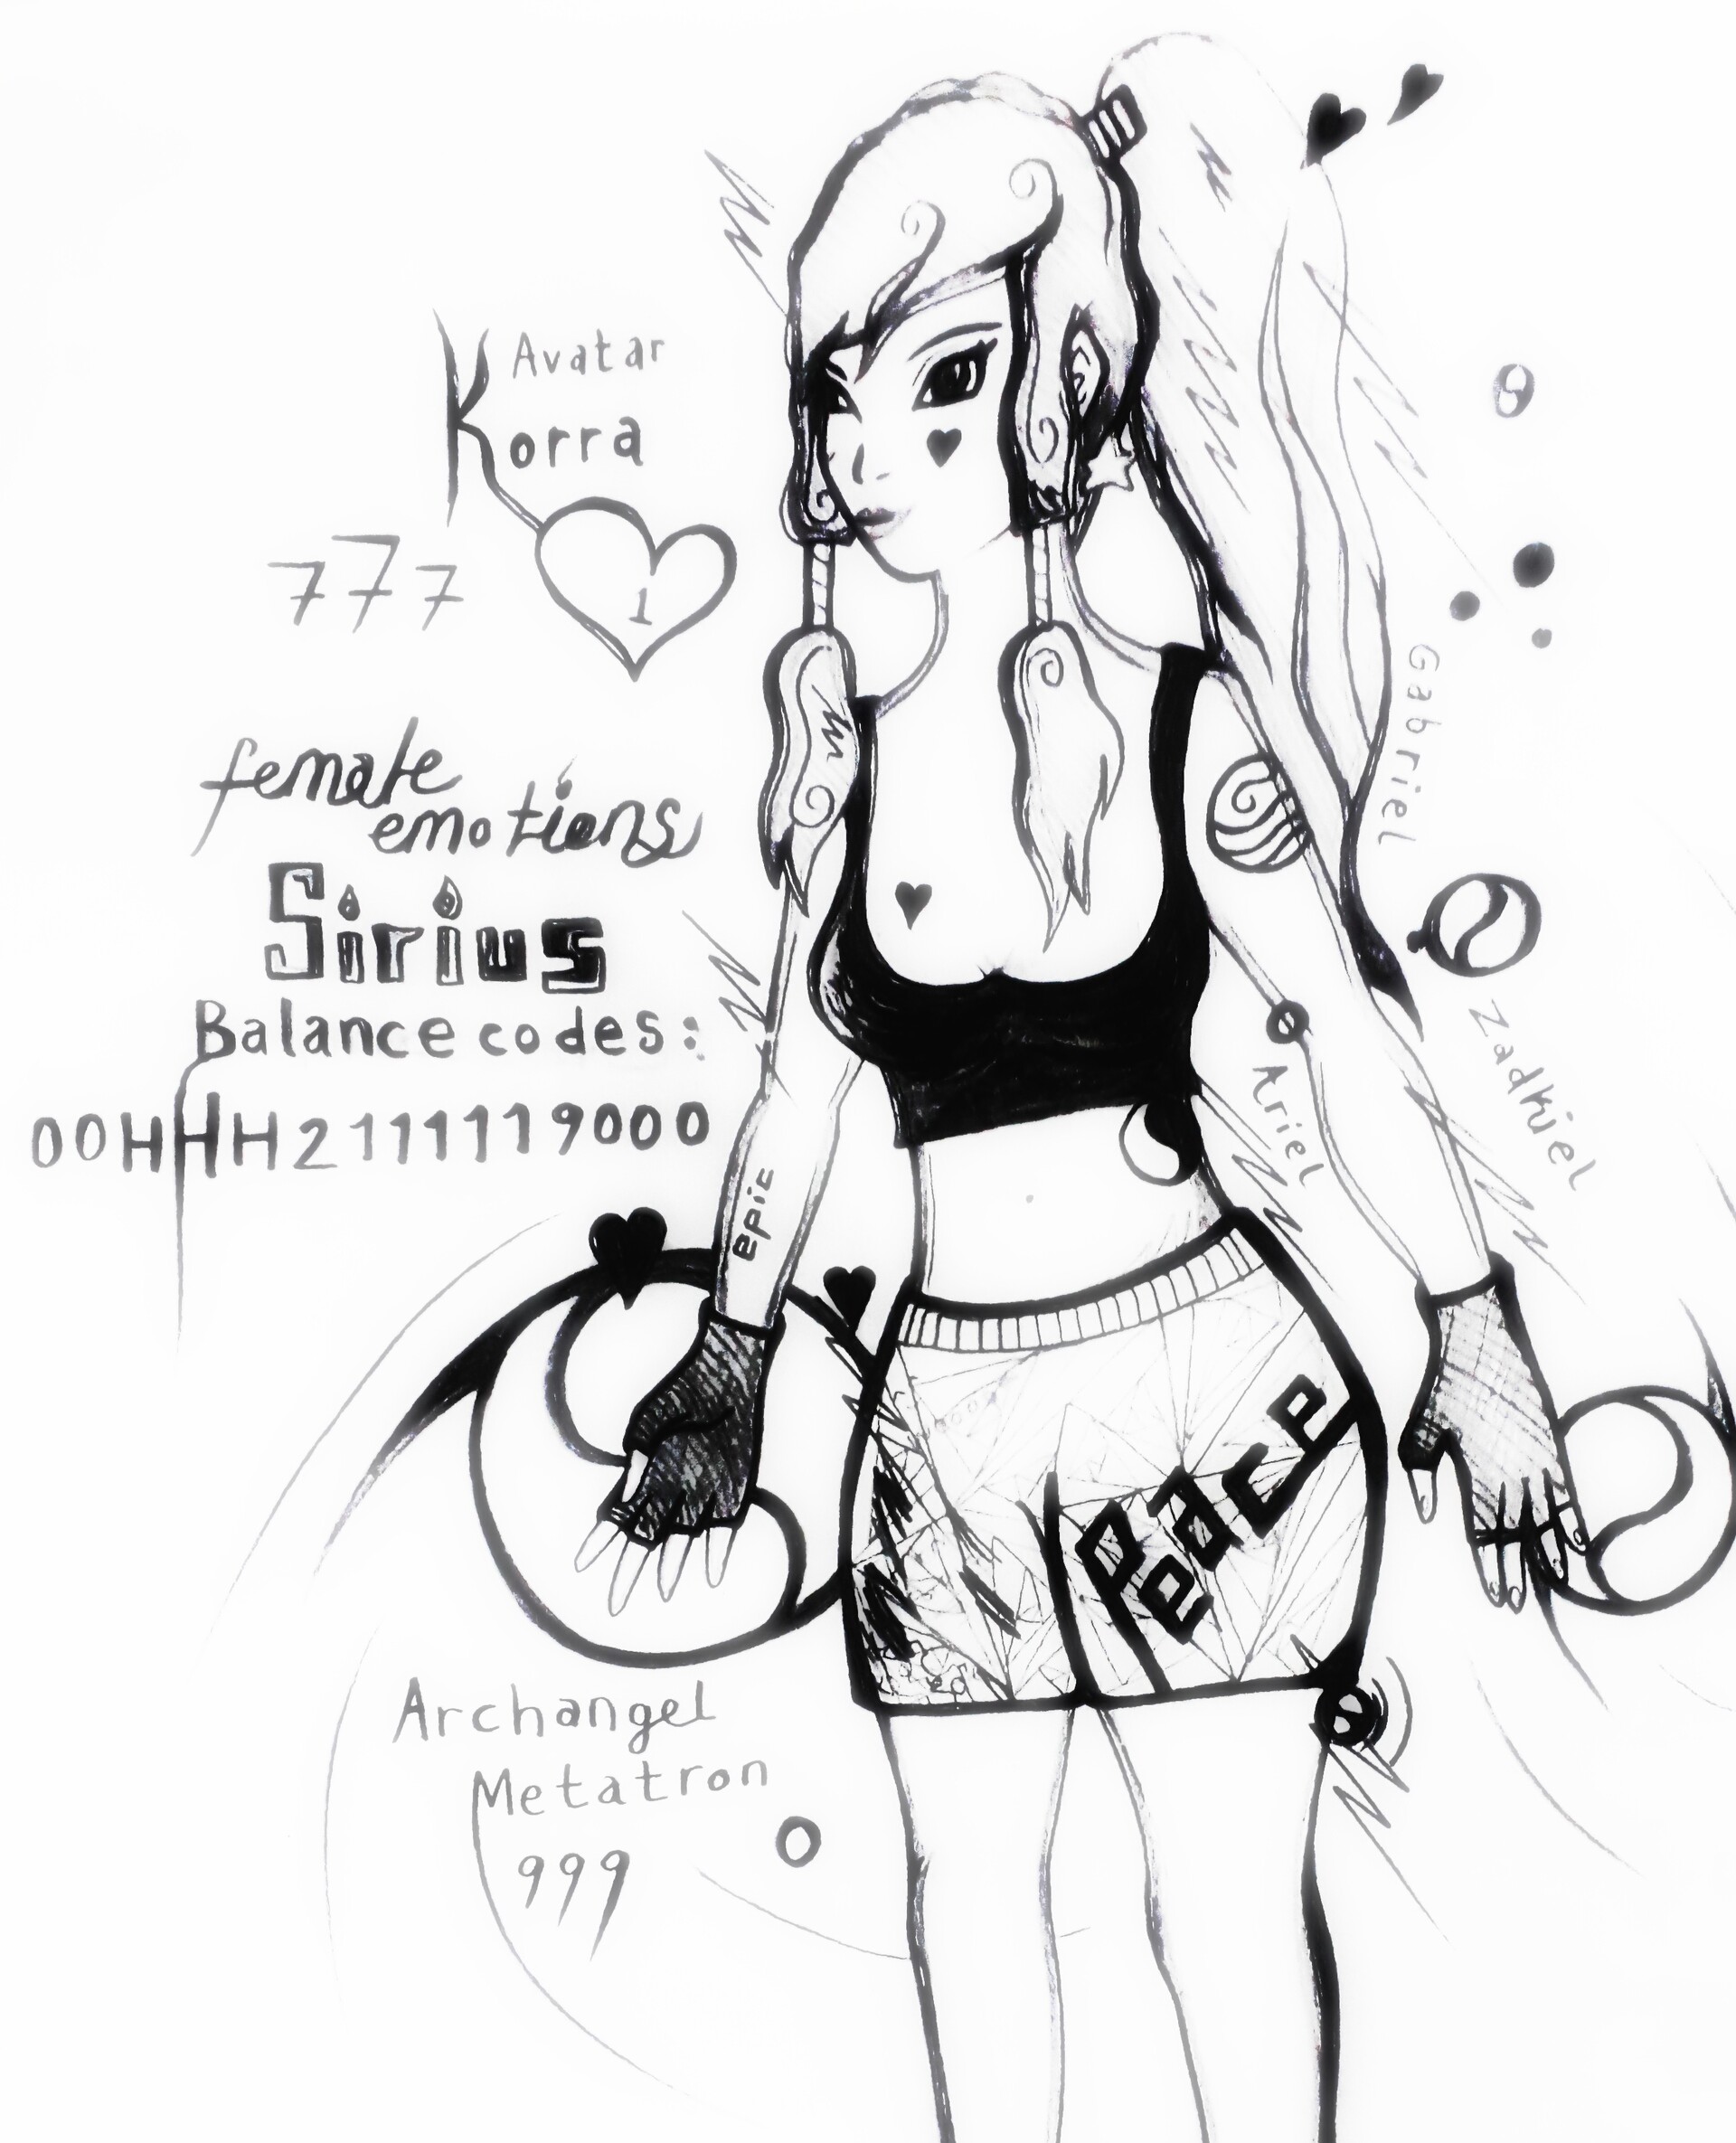 Avatar
Korra
1
777
female
emotions
Sirius
Balance codes:
00HHH2111119000
epic
Gabriel
Zadkiel
Ariel
Peace
Archangel
Metatron
999